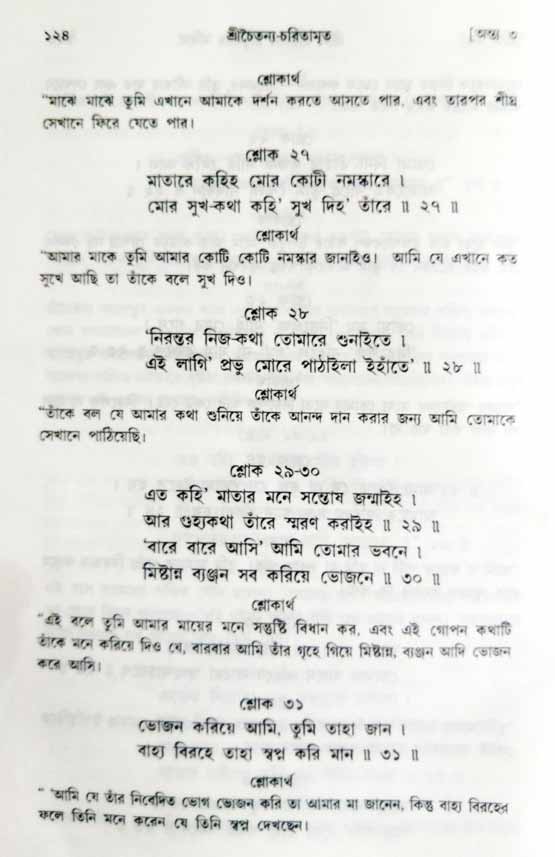 ১২৪ শ্রীচৈতন্য-চরিতামৃত [অন্ত্য ৩
শ্লোকার্থ
“মাঝে মাঝে তুমি এখানে আমাকে দর্শন করতে আসতে পার, এবং তারপর শীঘ্র
সেখানে ফিরে যেতে পার।
শ্লোক ২৭
মাতারে কহিহ মোর কোটী নমস্কারে ।
মোর সুখ-কথা কহি’ সুখ দিহ’ তাঁরে ॥ ২৭ ॥
শ্লোকার্থ
“আমার মাকে তুমি আমার কোটি কোটি নমস্কার জানাইও। আমি যে এখানে কত
সুখে আছি তা তাঁকে বলে সুখ দিও।
শ্লোক ২৮
‘নিরন্তর নিজ-কথা তোমারে শুনাইতে ।
এই লাগি’ প্রভু মোরে পাঠাইলা ইহাঁতে’ ॥ ২৮ ॥
শ্লোকার্থ
“তাঁকে বল যে আমার কথা শুনিয়ে তাঁকে আনন্দ দান করার জন্য আমি তোমাকে
সেখানে পাঠিয়েছি।
শ্লোক ২৯-৩০
এত কহি’ মাতার মনে সন্তোষ জন্মাইহ ।
আর গুহ্যকথা তাঁরে স্মরণ করাইহ ॥ ২৯ ॥
‘বারে বারে আসি’ আমি তোমার ভবনে ।
মিষ্টান্ন ব্যঞ্জন সব করিয়ে ভোজনে ॥ ৩০ ॥
শ্লোকার্থ
“এই বলে তুমি আমার মায়ের মনে সন্তুষ্টি বিধান কর, এবং এই গোপন কথাটি
তাঁকে মনে করিয়ে দিও যে, বারবার আমি তাঁর গৃহে গিয়ে মিষ্টান্ন, ব্যঞ্জন আদি ভোজন
করে আসি।
শ্লোক ৩১
ভোজন করিয়ে আমি, তুমি তাহা জান ।
বাহ্য বিরহে তাহা স্বপ্ন করি মান ॥ ৩১ ॥
শ্লোকার্থ
“ ‘আমি যে তাঁর নিবেদিত ভোগ ভোজন করি তা আমার মা জানেন, কিন্তু বাহ্য বিরহের
ফলে তিনি মনে করেন যে তিনি স্বপ্ন দেখছেন।